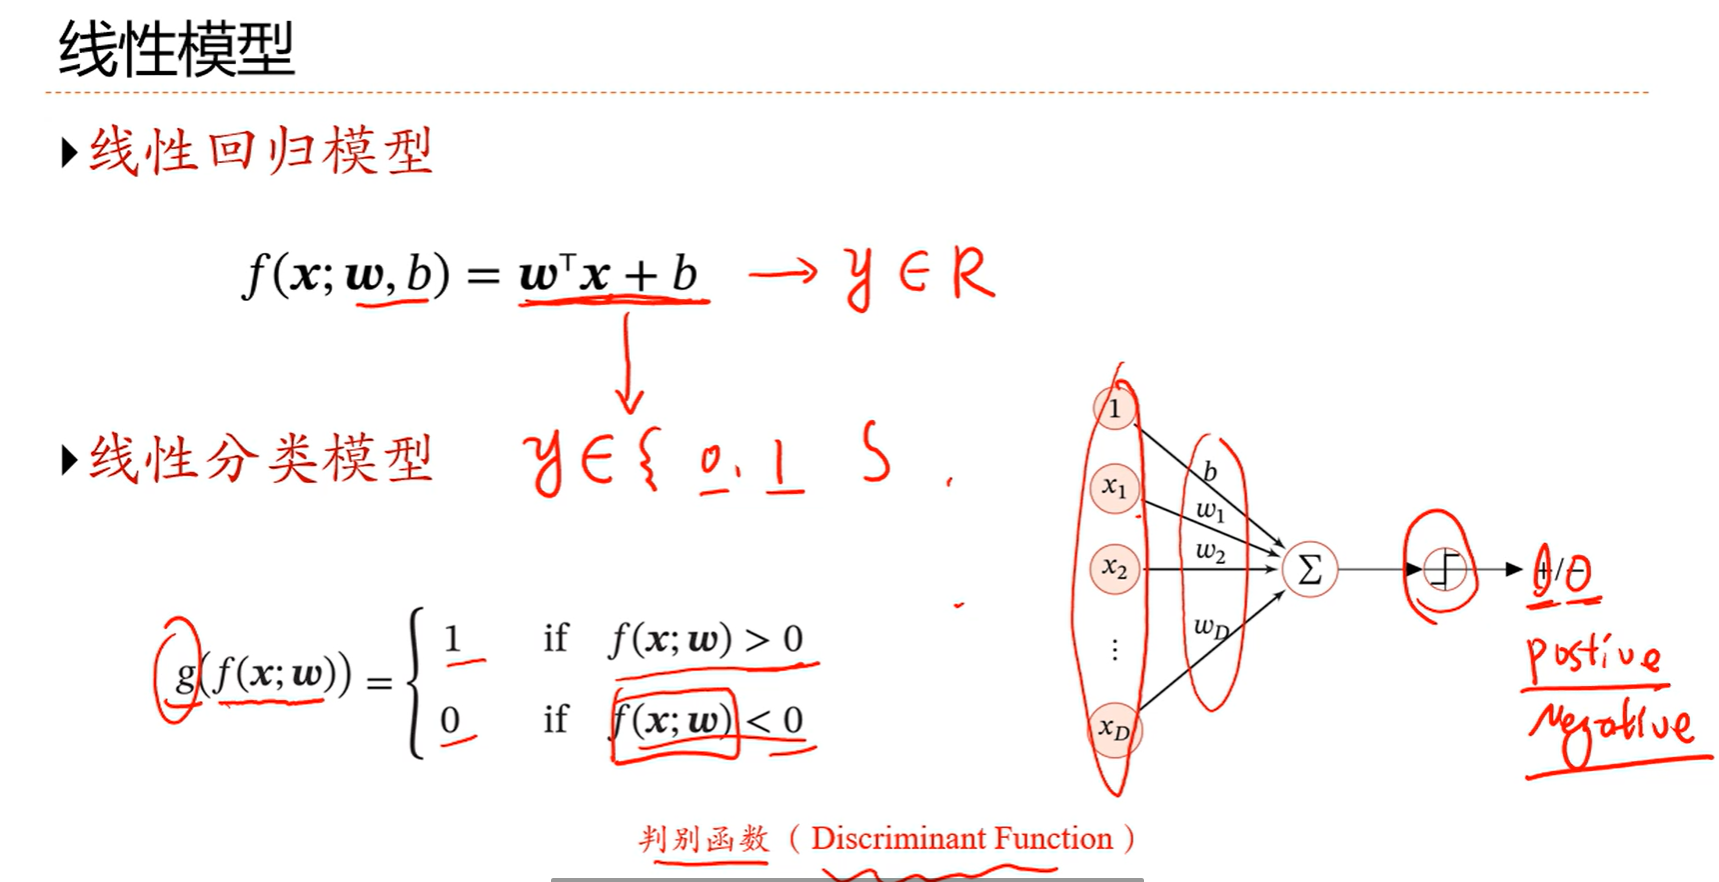 线性模型
线性回归模型
f(x; w, b) = wᵀx + b → y ∈ R
线性分类模型 y ∈ { 0, 1 }
g(f(x; w)) = { 1 if f(x; w) > 0
0 if f(x; w) < 0
1
x₁
x₂
⋮
x_D
b
w₁
w₂
w_D
Σ
1/0
postive
Negative
判别函数（Discriminant Function）